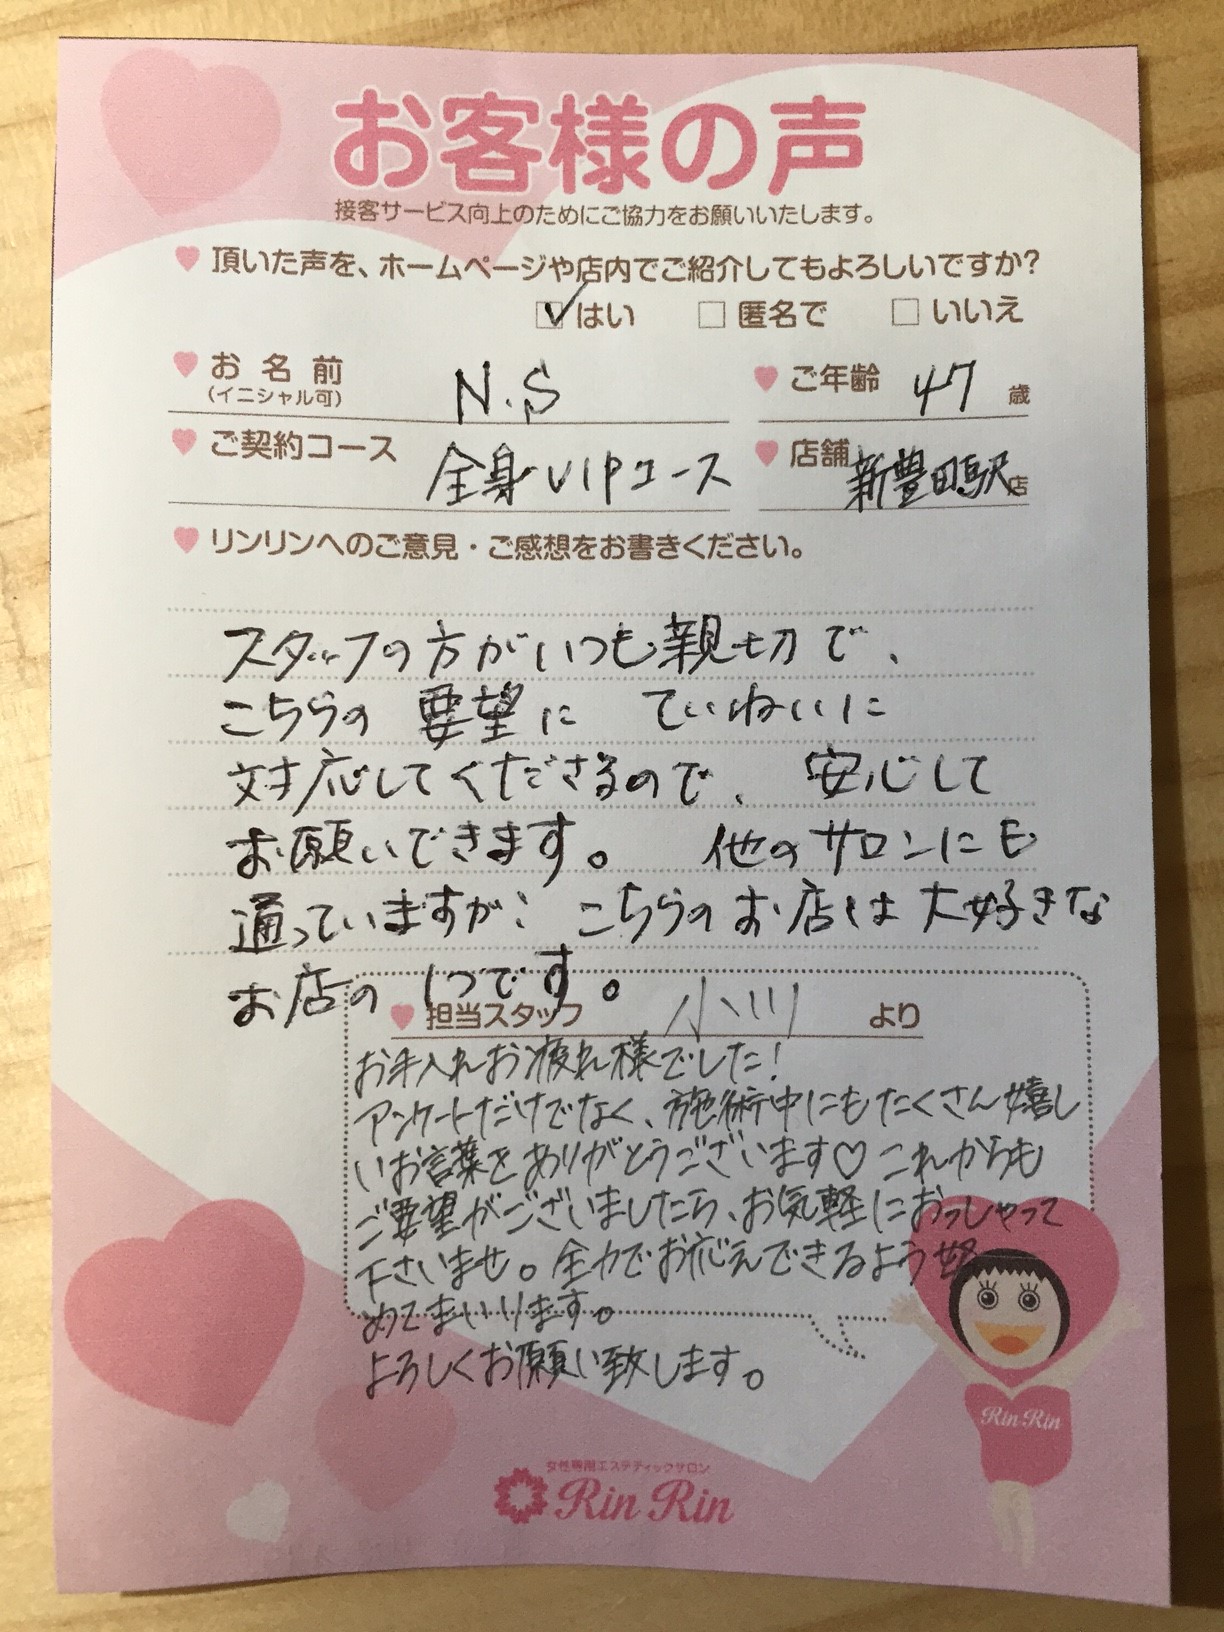 お客様の声
接客サービス向上のためにご協力をお願いいたします。
頂いた声を、ホームページや店内でご紹介してもよろしいですか?
はい 匿名で いいえ
お名前 N.S ご年齢 47 歳
(イニシャル可)
ご契約コース 全身VIPコース 店舗 新豊田駅店
リンリンへのご意見・ご感想をお書きください。
スタッフの方がいつも親切で、
こちらの要望に ていねいに
対応してくださるので、 安心して
お願いできます。 他のサロンにも
通っていますが、 こちらのお店は大好きな
お店の1つです。
担当スタッフ 小川 より
お手入れお疲れ様でした!
アンケートだけでなく、施術中にもたくさん嬉し
いお言葉をありがとうございます♡ これからも
ご要望がございましたら、お気軽におっしゃって
下さいませ。全力でお応えできるよう努
めてまいります。
よろしくお願い致します。
Rin Rin
女性専用エステティックサロン
Rin Rin